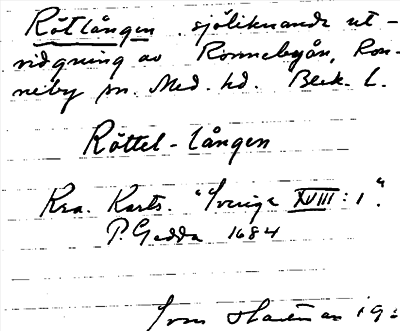 Rötlången sjöliknande ut-
vidgning av Ronnebyån, Ron-
neby sn. Med. hd. Blek. l.
Röttel-lången
Kra. Karts. "Sverige XVIII: 1".
P. Gedda 1684
19